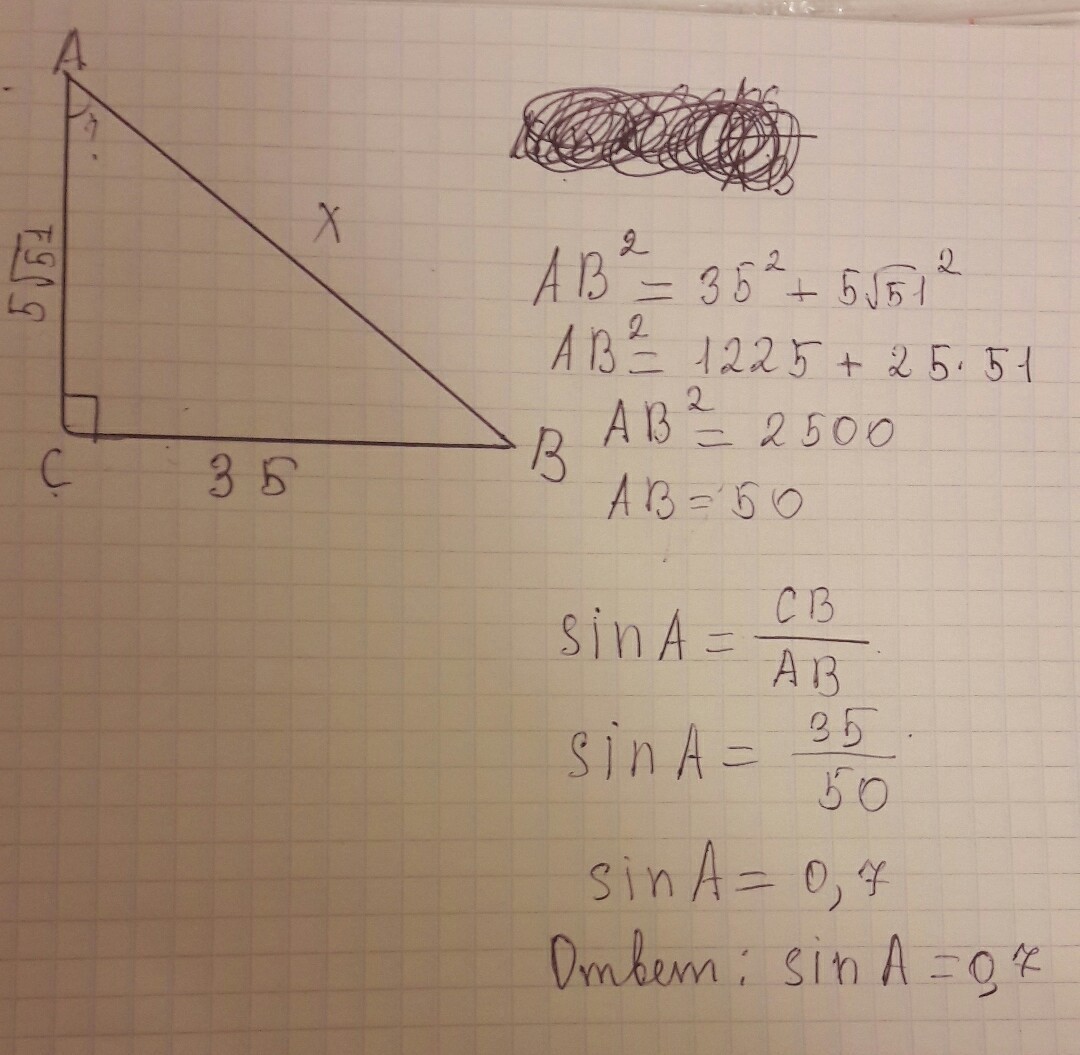 A
?
X
5√51
C
35
B
AB² = 35² + 5√51²
AB² = 1225 + 25·51
AB² = 2500
AB = 50
sin A = CB/AB
sin A = 35/50
sin A = 0,7
Ответ: sin A = 0,7